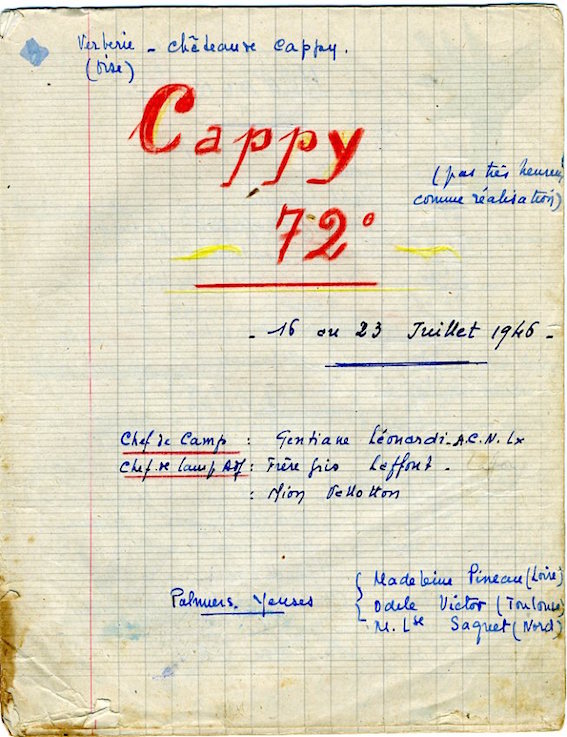 Verberie - château de Cappy.
(Oise)
Cappy
72°
(pas très heureux
comme réalisation)
- 16 au 23 Juillet 1946 -
Chef de Camp : Gentiane Léonardi. A.C.N. Lx
Chef de Camp Adj : Frère gris Laffont -
: Nion
Palmers. Yeuses
Madeleine Pineau (Loire)
Odile Victor (Toulouse)
M. Lse Saquet (Nord)